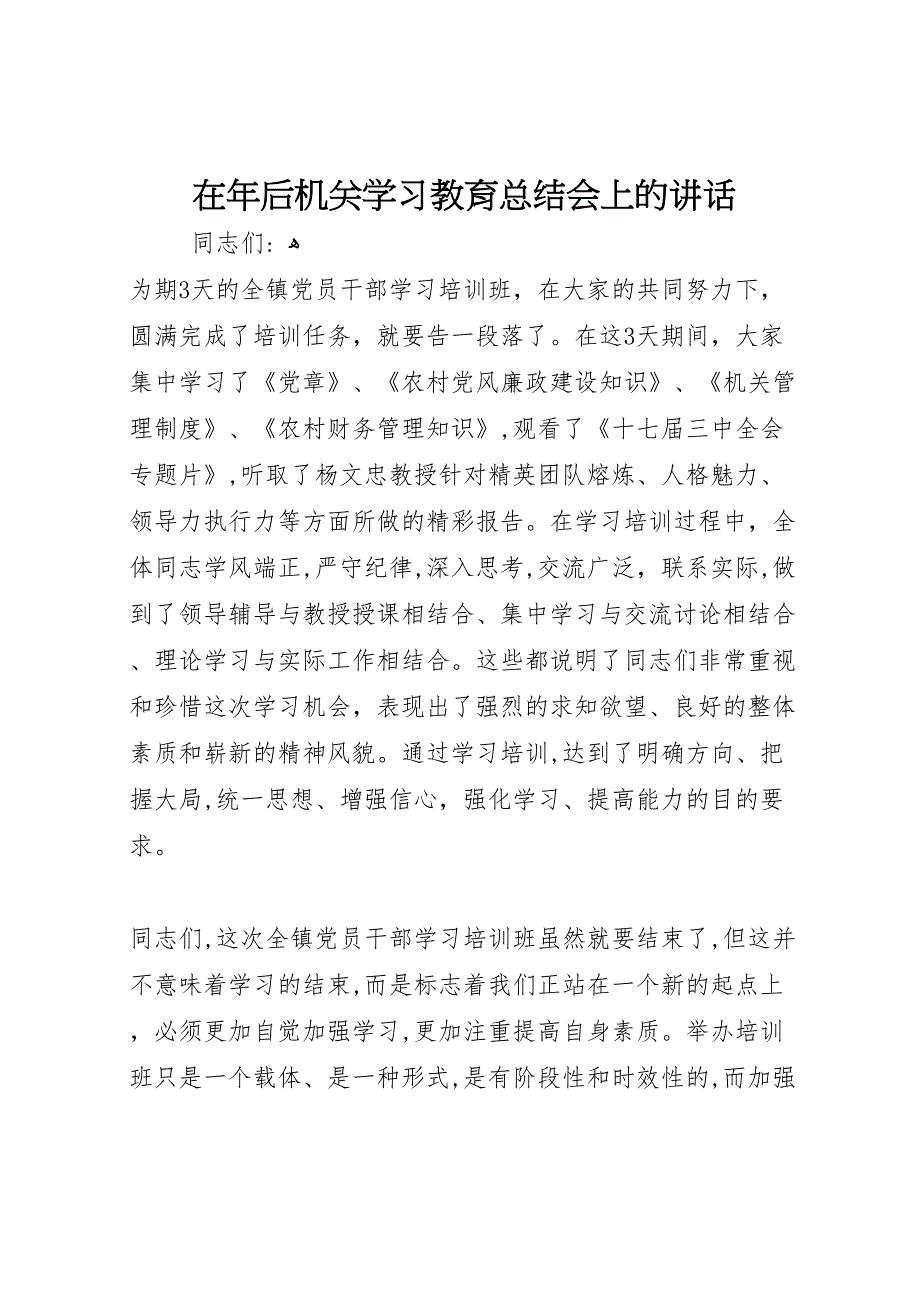 在年后机关学习教育总结会上的讲话
同志们: ﻫ
为期3天的全镇党员干部学习培训班，在大家的共同努力下，
圆满完成了培训任务，就要告一段落了。在这3天期间，大家
集中学习了《党章》、《农村党风廉政建设知识》、《机关管
理制度》、《农村财务管理知识》,观看了《十七届三中全会
专题片》,听取了杨文忠教授针对精英团队熔炼、人格魅力、
领导力执行力等方面所做的精彩报告。在学习培训过程中，全
体同志学风端正,严守纪律,深入思考,交流广泛，联系实际,做
到了领导辅导与教授授课相结合、集中学习与交流讨论相结合
、理论学习与实际工作相结合。这些都说明了同志们非常重视
和珍惜这次学习机会，表现出了强烈的求知欲望、良好的整体
素质和崭新的精神风貌。通过学习培训,达到了明确方向、把
握大局,统一思想、增强信心，强化学习、提高能力的目的要
求。
同志们,这次全镇党员干部学习培训班虽然就要结束了,但这并
不意味着学习的结束,而是标志着我们正站在一个新的起点上
，必须更加自觉加强学习,更加注重提高自身素质。举办培训
班只是一个载体、是一种形式,是有阶段性和时效性的,而加强